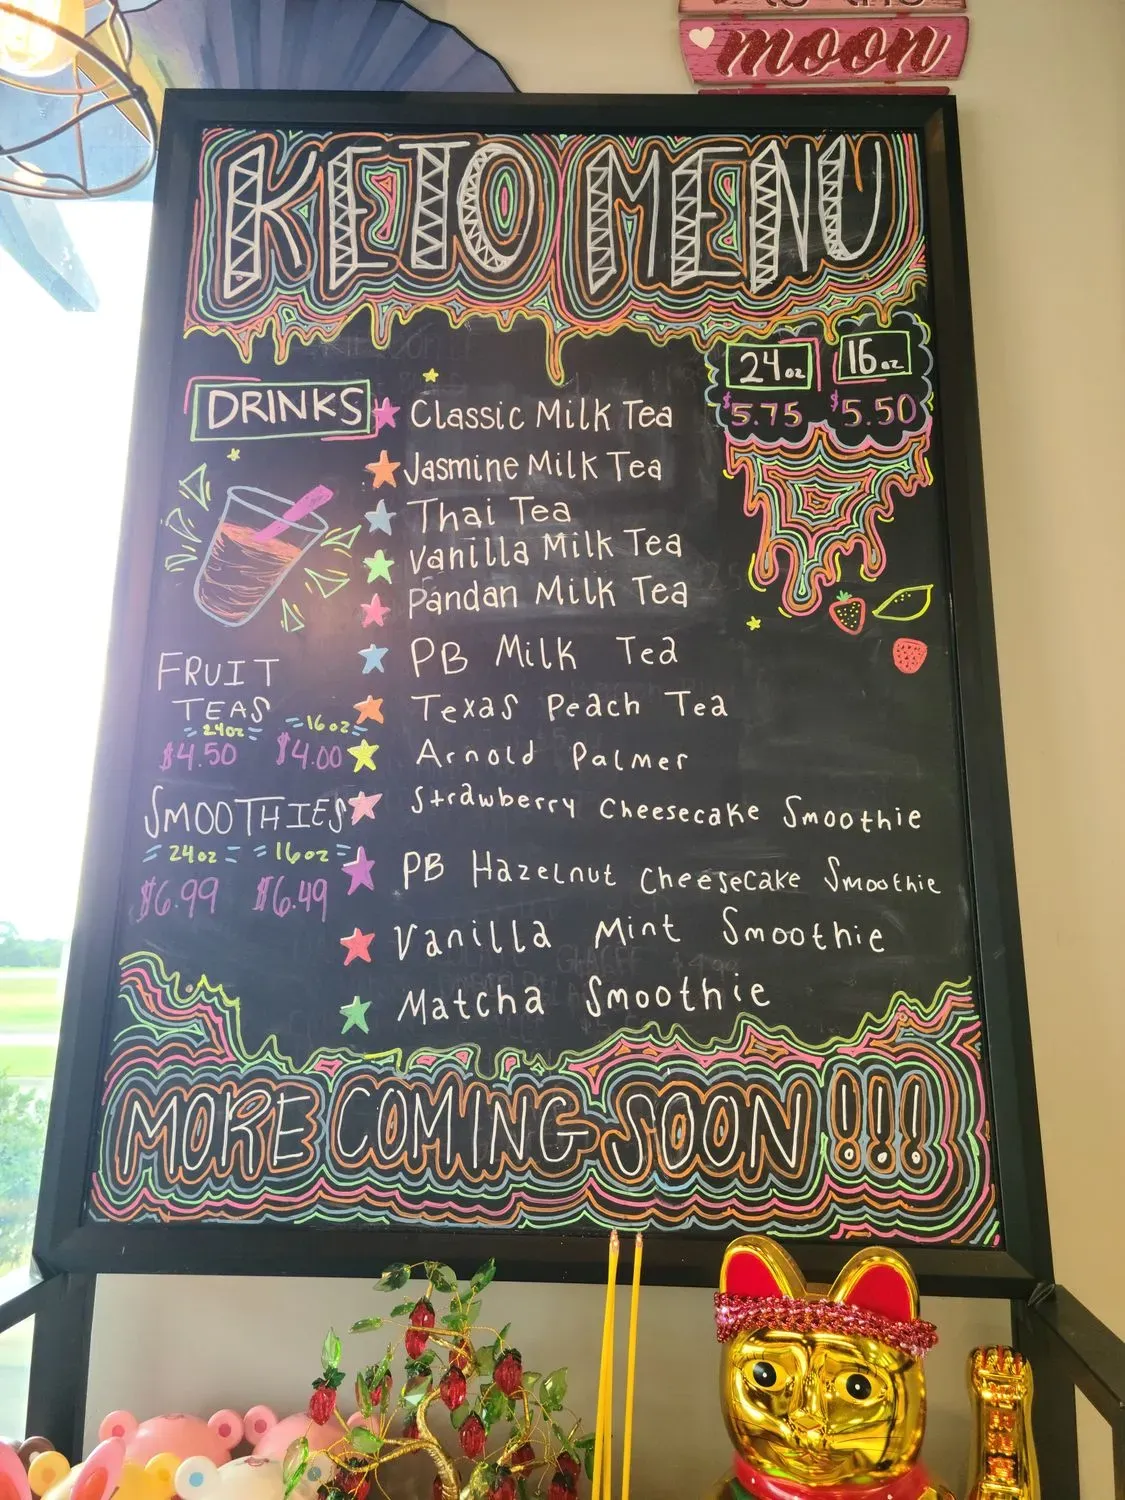 to the
moon
KETO MENU
24oz 16oz
$5.75 $5.50
DRINKS
Classic Milk Tea
Jasmine Milk Tea
Thai Tea
Vanilla Milk Tea
Pandan Milk Tea
PB Milk Tea
Texas Peach Tea
Arnold Palmer
Strawberry Cheesecake Smoothie
PB Hazelnut Cheesecake Smoothie
Vanilla Mint Smoothie
Matcha Smoothie
FRUIT
TEAS
24oz 16oz
$4.50 $4.00
SMOOTHIES
24oz 16oz
$6.99 $6.49
MORE COMING SOON!!!